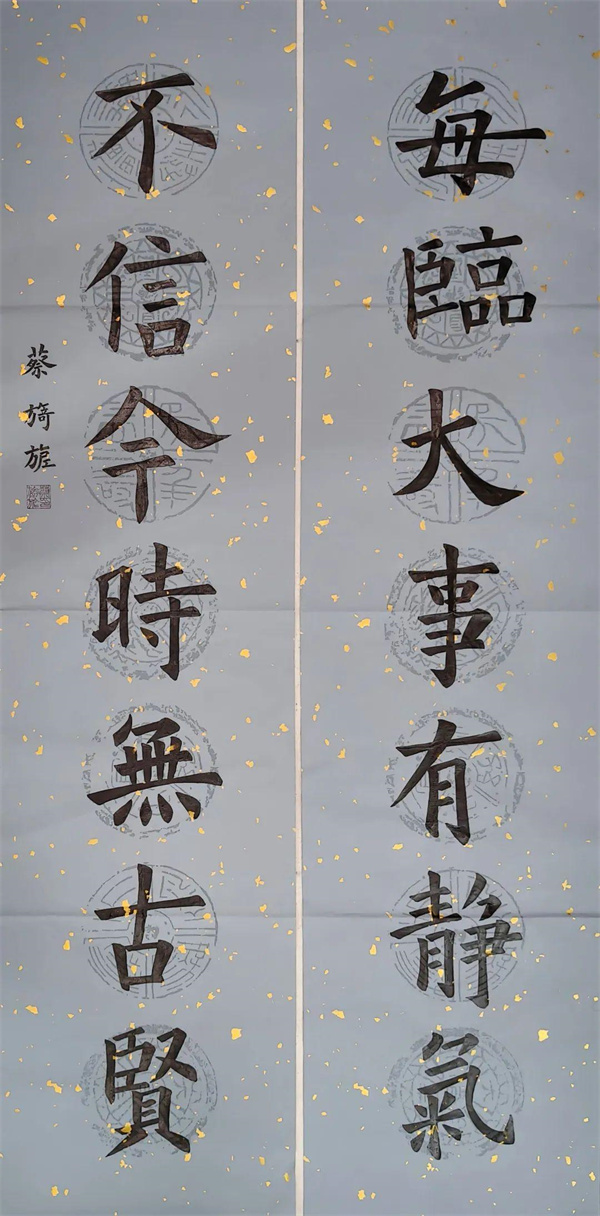 每臨大事有静氣
不信今時無古賢
蔡旖旎